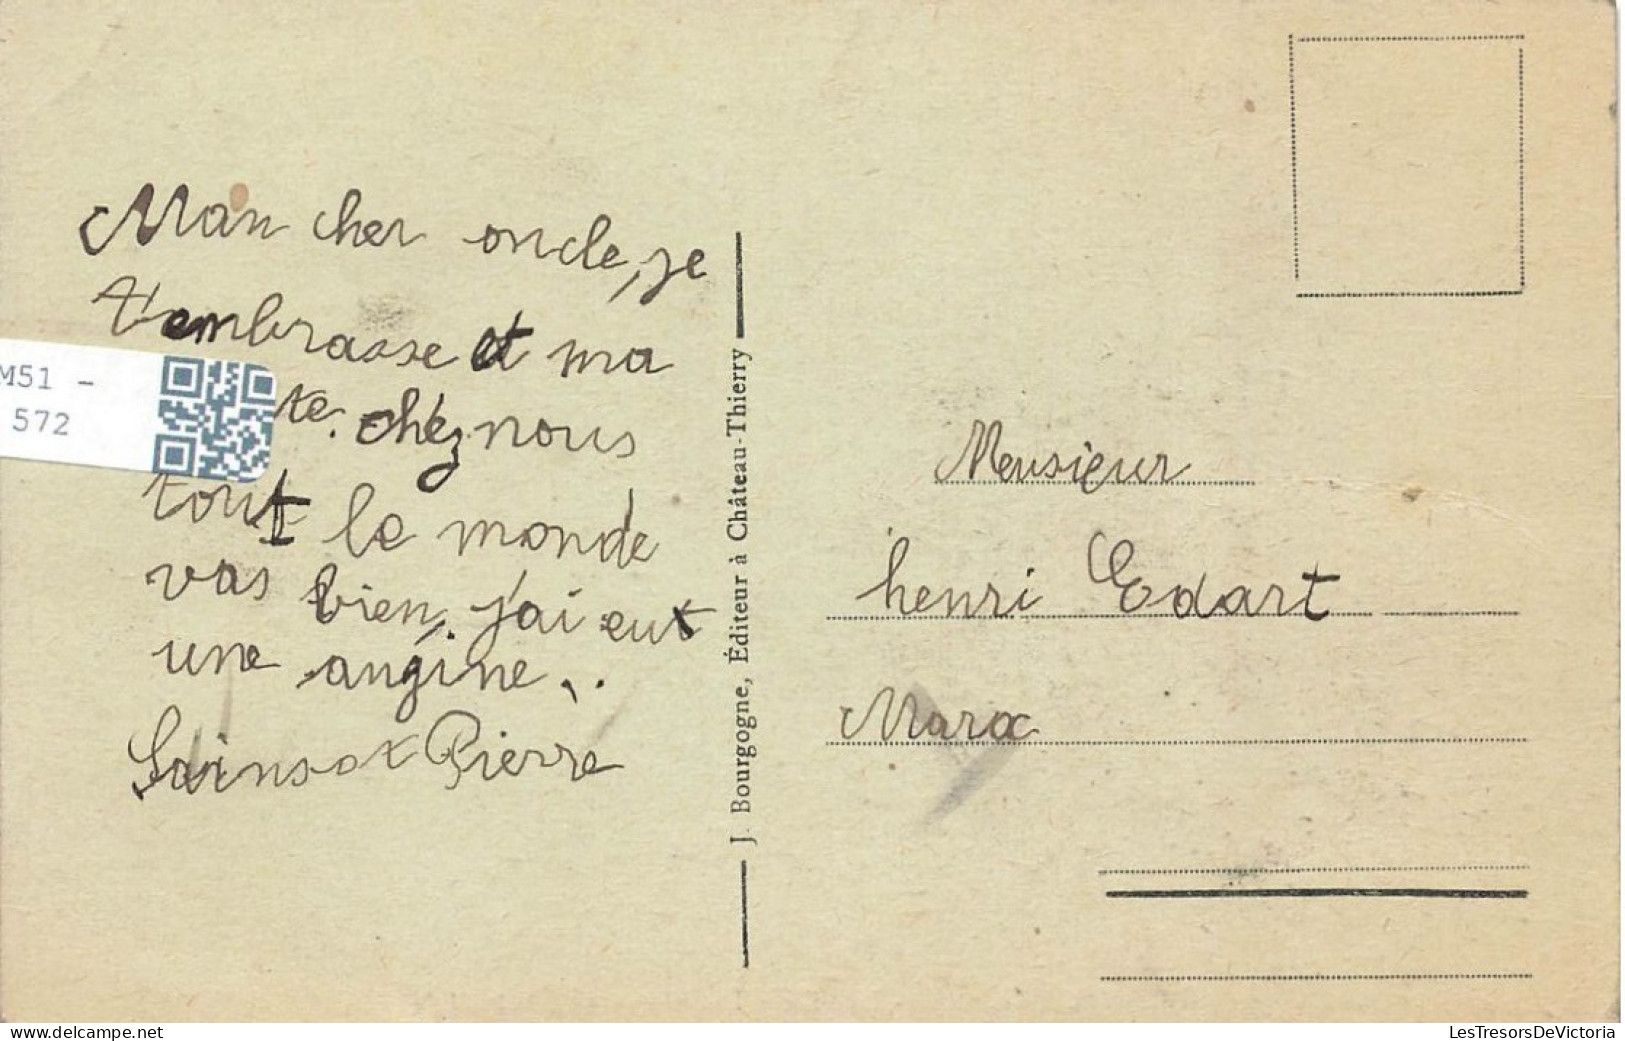 Mon cher oncle, je
t'embrasse et ma
te. chez nous
tout le monde
vas bien, j'ai eut
une angine..
Sainsot Pierre
M51 -
572
J. Bourgogne, Éditeur à Château-Thierry
Mensieur
henri Edart
Maroc
delcampe.net
LesTresorsDeVictoria